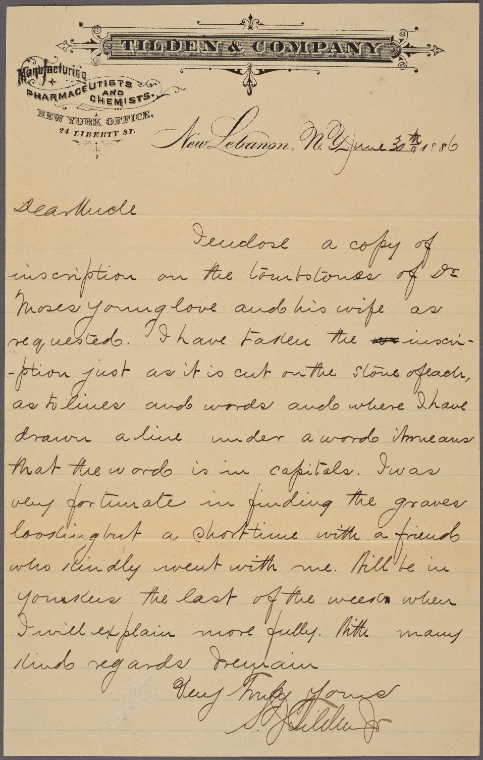 TILDEN & COMPANY
Manufacturing
PHARMACEUTISTS
AND
CHEMISTS.
NEW YORK OFFICE,
24 LIBERTY ST.
New Lebanon, N.Y. June 30th 1886
Dear Uncle
I enclose a copy of
inscription on the tombstones of Dr
Moses Younglove and his wife as
requested. I have taken the inscri-
-ption just as it is cut on the stone of each,
as to lines and words and where I have
drawn a line under a word it means
that the word is in capitals. I was
very fortunate in finding the graves
looking but a short time with a friend
who kindly went with me. Will be in
Yonkers the last of the week when
I will explain more fully. With many
kind regards I remain
Very Truly yours
S. J. Tilden Jr